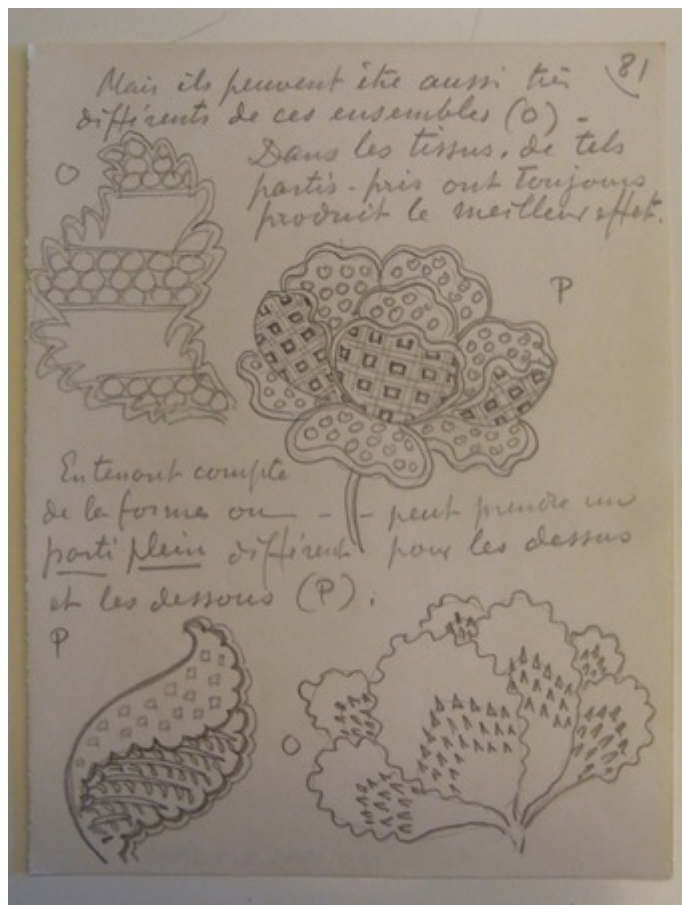 81
Mais ils peuvent être aussi très
différents de ces ensembles (O) -
O
Dans les tissus, de tels
partis-pris ont toujours
produit le meilleur effet.
P
En tenant compte
de la forme on - - peut prendre un
parti plein différent pour les dessus
et les dessous (P).
P
O